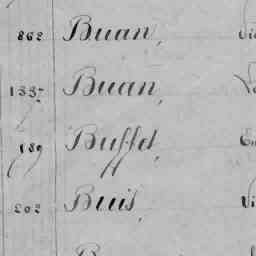 862 Buan,
1337 Buan,
189 Buffet,
202 Buis,